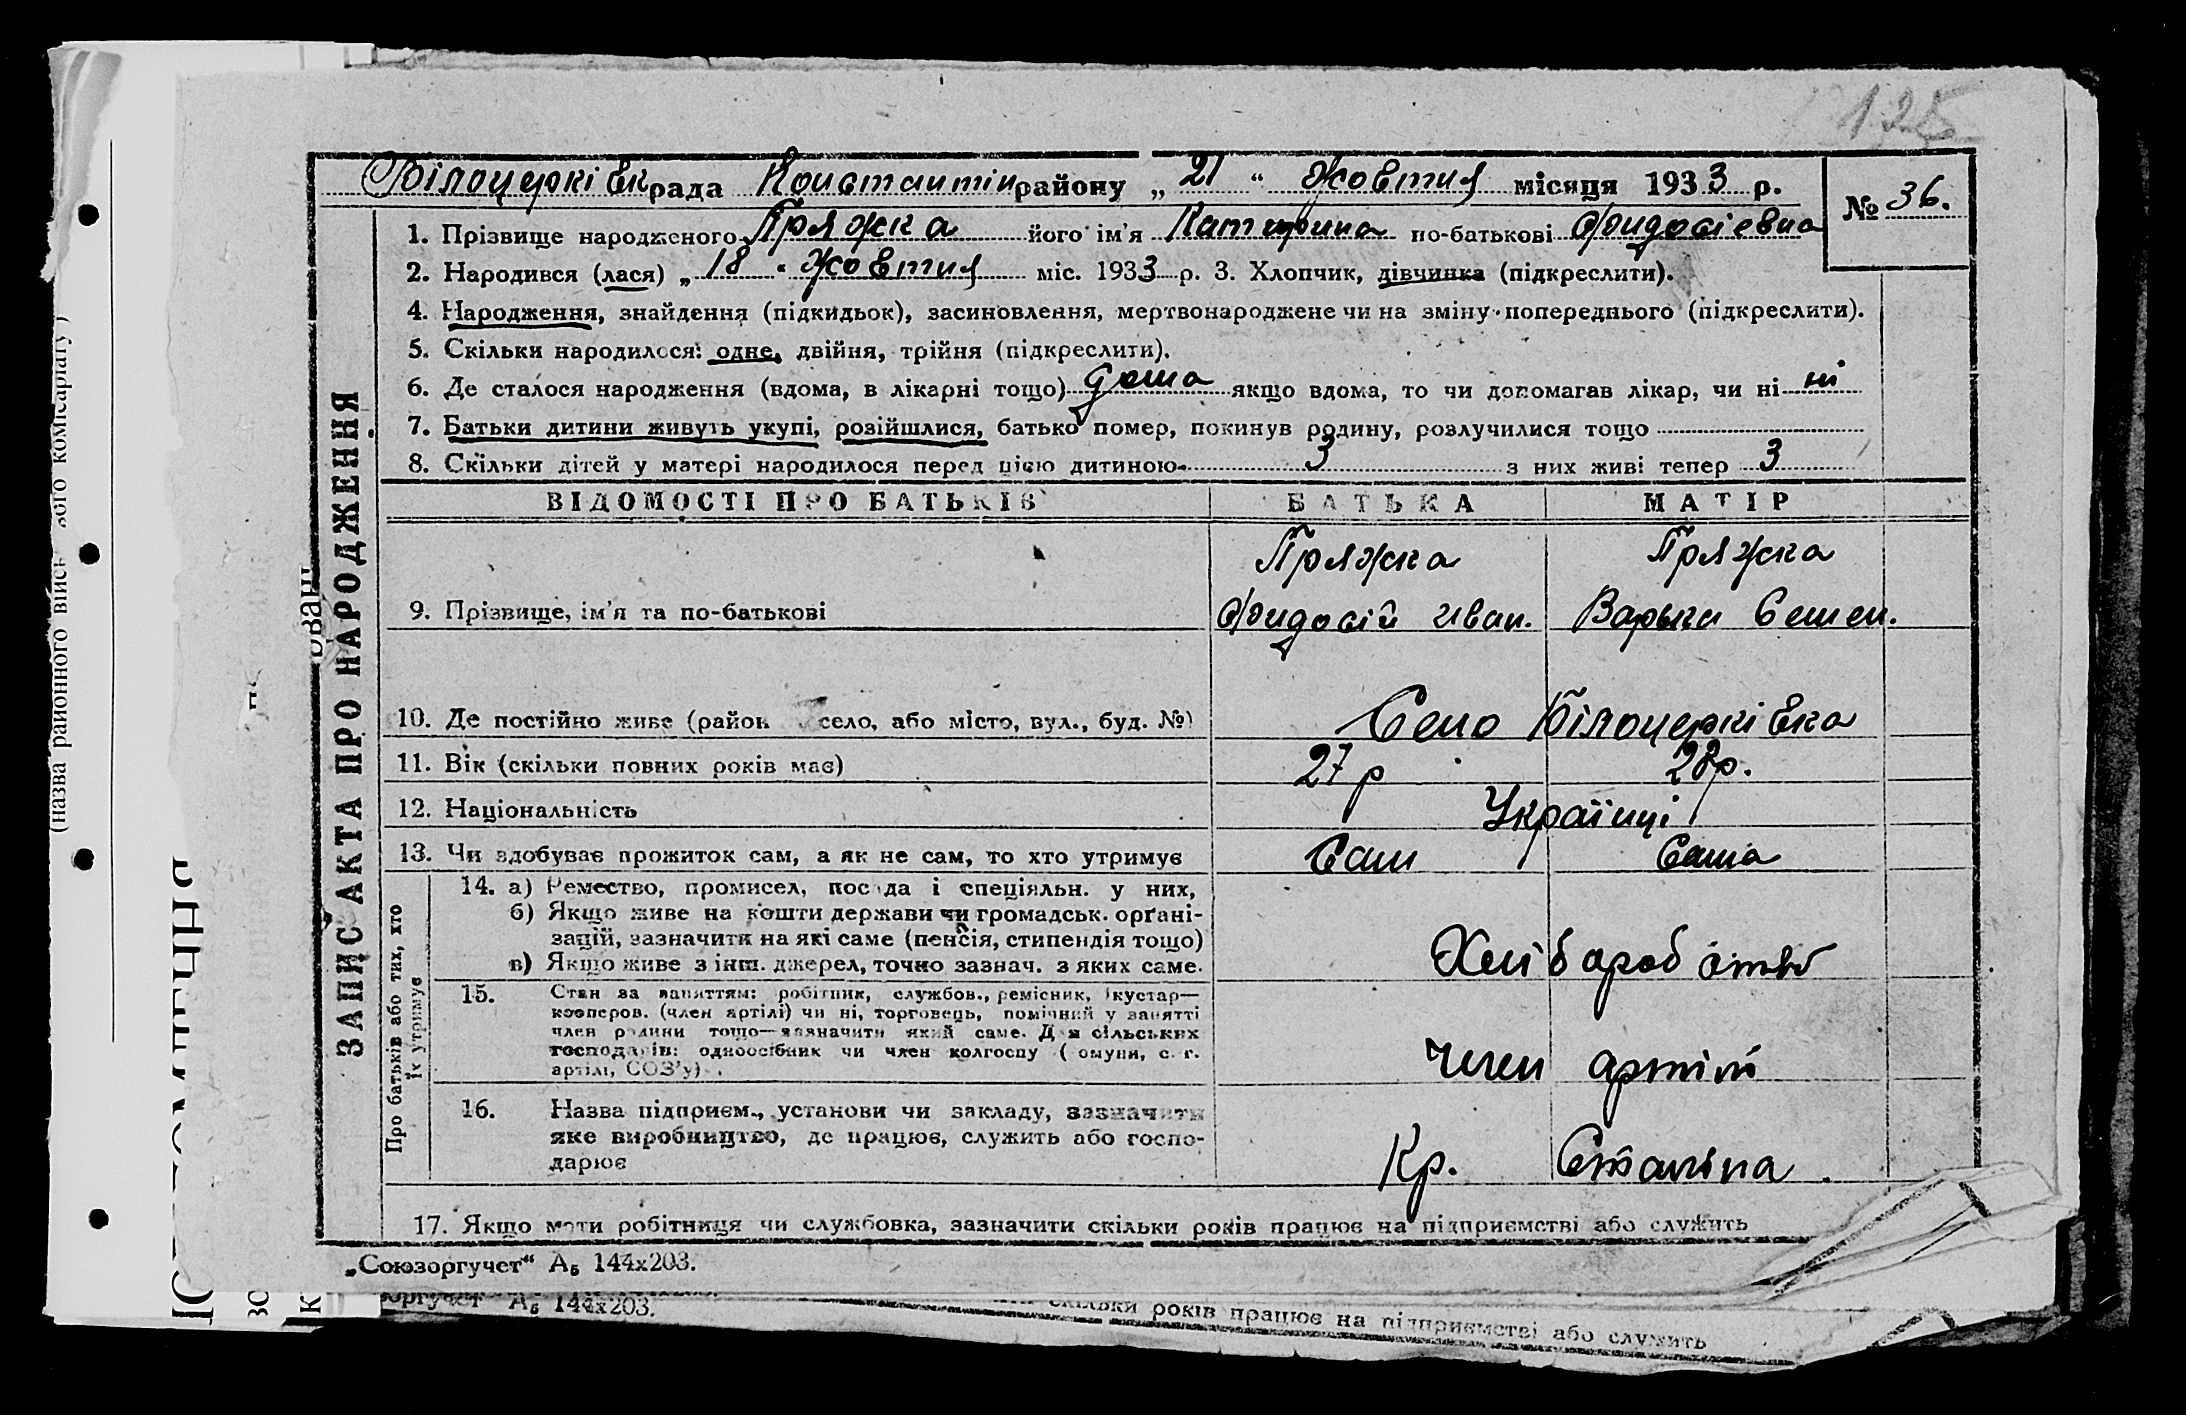 125
Білоцерківк рада Константин району „ 21 “ Жовтня місяця 1933 р.
№ 36.
1. Прізвище народженого Пряжка його ім’я Катирина по-батькові Фидосіевна
2. Народився (лася) „ 18 “ Жовтня міс. 1933 р. 3. Хлопчик, дівчинка (підкреслити).
4. Народження, знайдення (підкидьок), засиновлення, мертвонароджене чи на зміну попереднього (підкреслити).
5. Скільки народилося: одне, двійня, трійня (підкреслити).
6. Де сталося народження (вдома, в лікарні тощо) дома якщо вдома, то чи допомагав лікар, чи ні ні
7. Батьки дитини живуть укупі, розійшлися, батько помер, покинув родину, розлучилися тощо
8. Скільки дітей у матері народилося перед цією дитиною 3 з них живі тепер 3
ЗАПИС АКТА ПРО НАРОДЖЕННЯ
ВІДОМОСТІ ПРО БАТЬКІВ БАТЬКА МАТІР
Пряжка Пряжка
9. Прізвище, ім’я та по-батькові Фидосій Иван. Варька Семен.
10. Де постійно живе (район село, або місто, вул., буд. №) Село Білоцерківка
11. Вік (скільки повних років має) 27 р 28р.
12. Національність Українці
13. Чи здобуває прожиток сам, а як не сам, то хто утримує Сам Сама
Про батьків або тих, хто їх утримує
14. а) Ремество, промисел, посада і спеціяльн. у них,
б) Якщо живе на кошти держави чи громадськ. орґані-
зацій, зазначити на які саме (пенсія, стипендія тощо)
в) Якщо живе з інш. джерел, точно зазнач. з яких саме.
Хлібаробство
15. Стан за заняттям: робітник, службов., ремісник, кустар—
кооперов. (член артілі) чи ні, торговець, помічний у занятті
член родини тощо—зазначити який саме. Для сільських
господарів: одноосібник чи член колгоспу (комуни, с. г.
артілі, СОЗ’у).
член артілі
16. Назва підприєм., установи чи закладу, зазначити
яке виробництво, де працює, служить або госпо-
дарює
Кр. Сталіна.
17. Якщо мати робітниця чи службовка, зазначити скільки років працює на підприємстві або служить
„Союзоргучет“ А₅ 144х203.
оргучет“ А₅ 144х203.
скільки років працює на підприємстві або служить
(назва районного військ ого комісаріату)